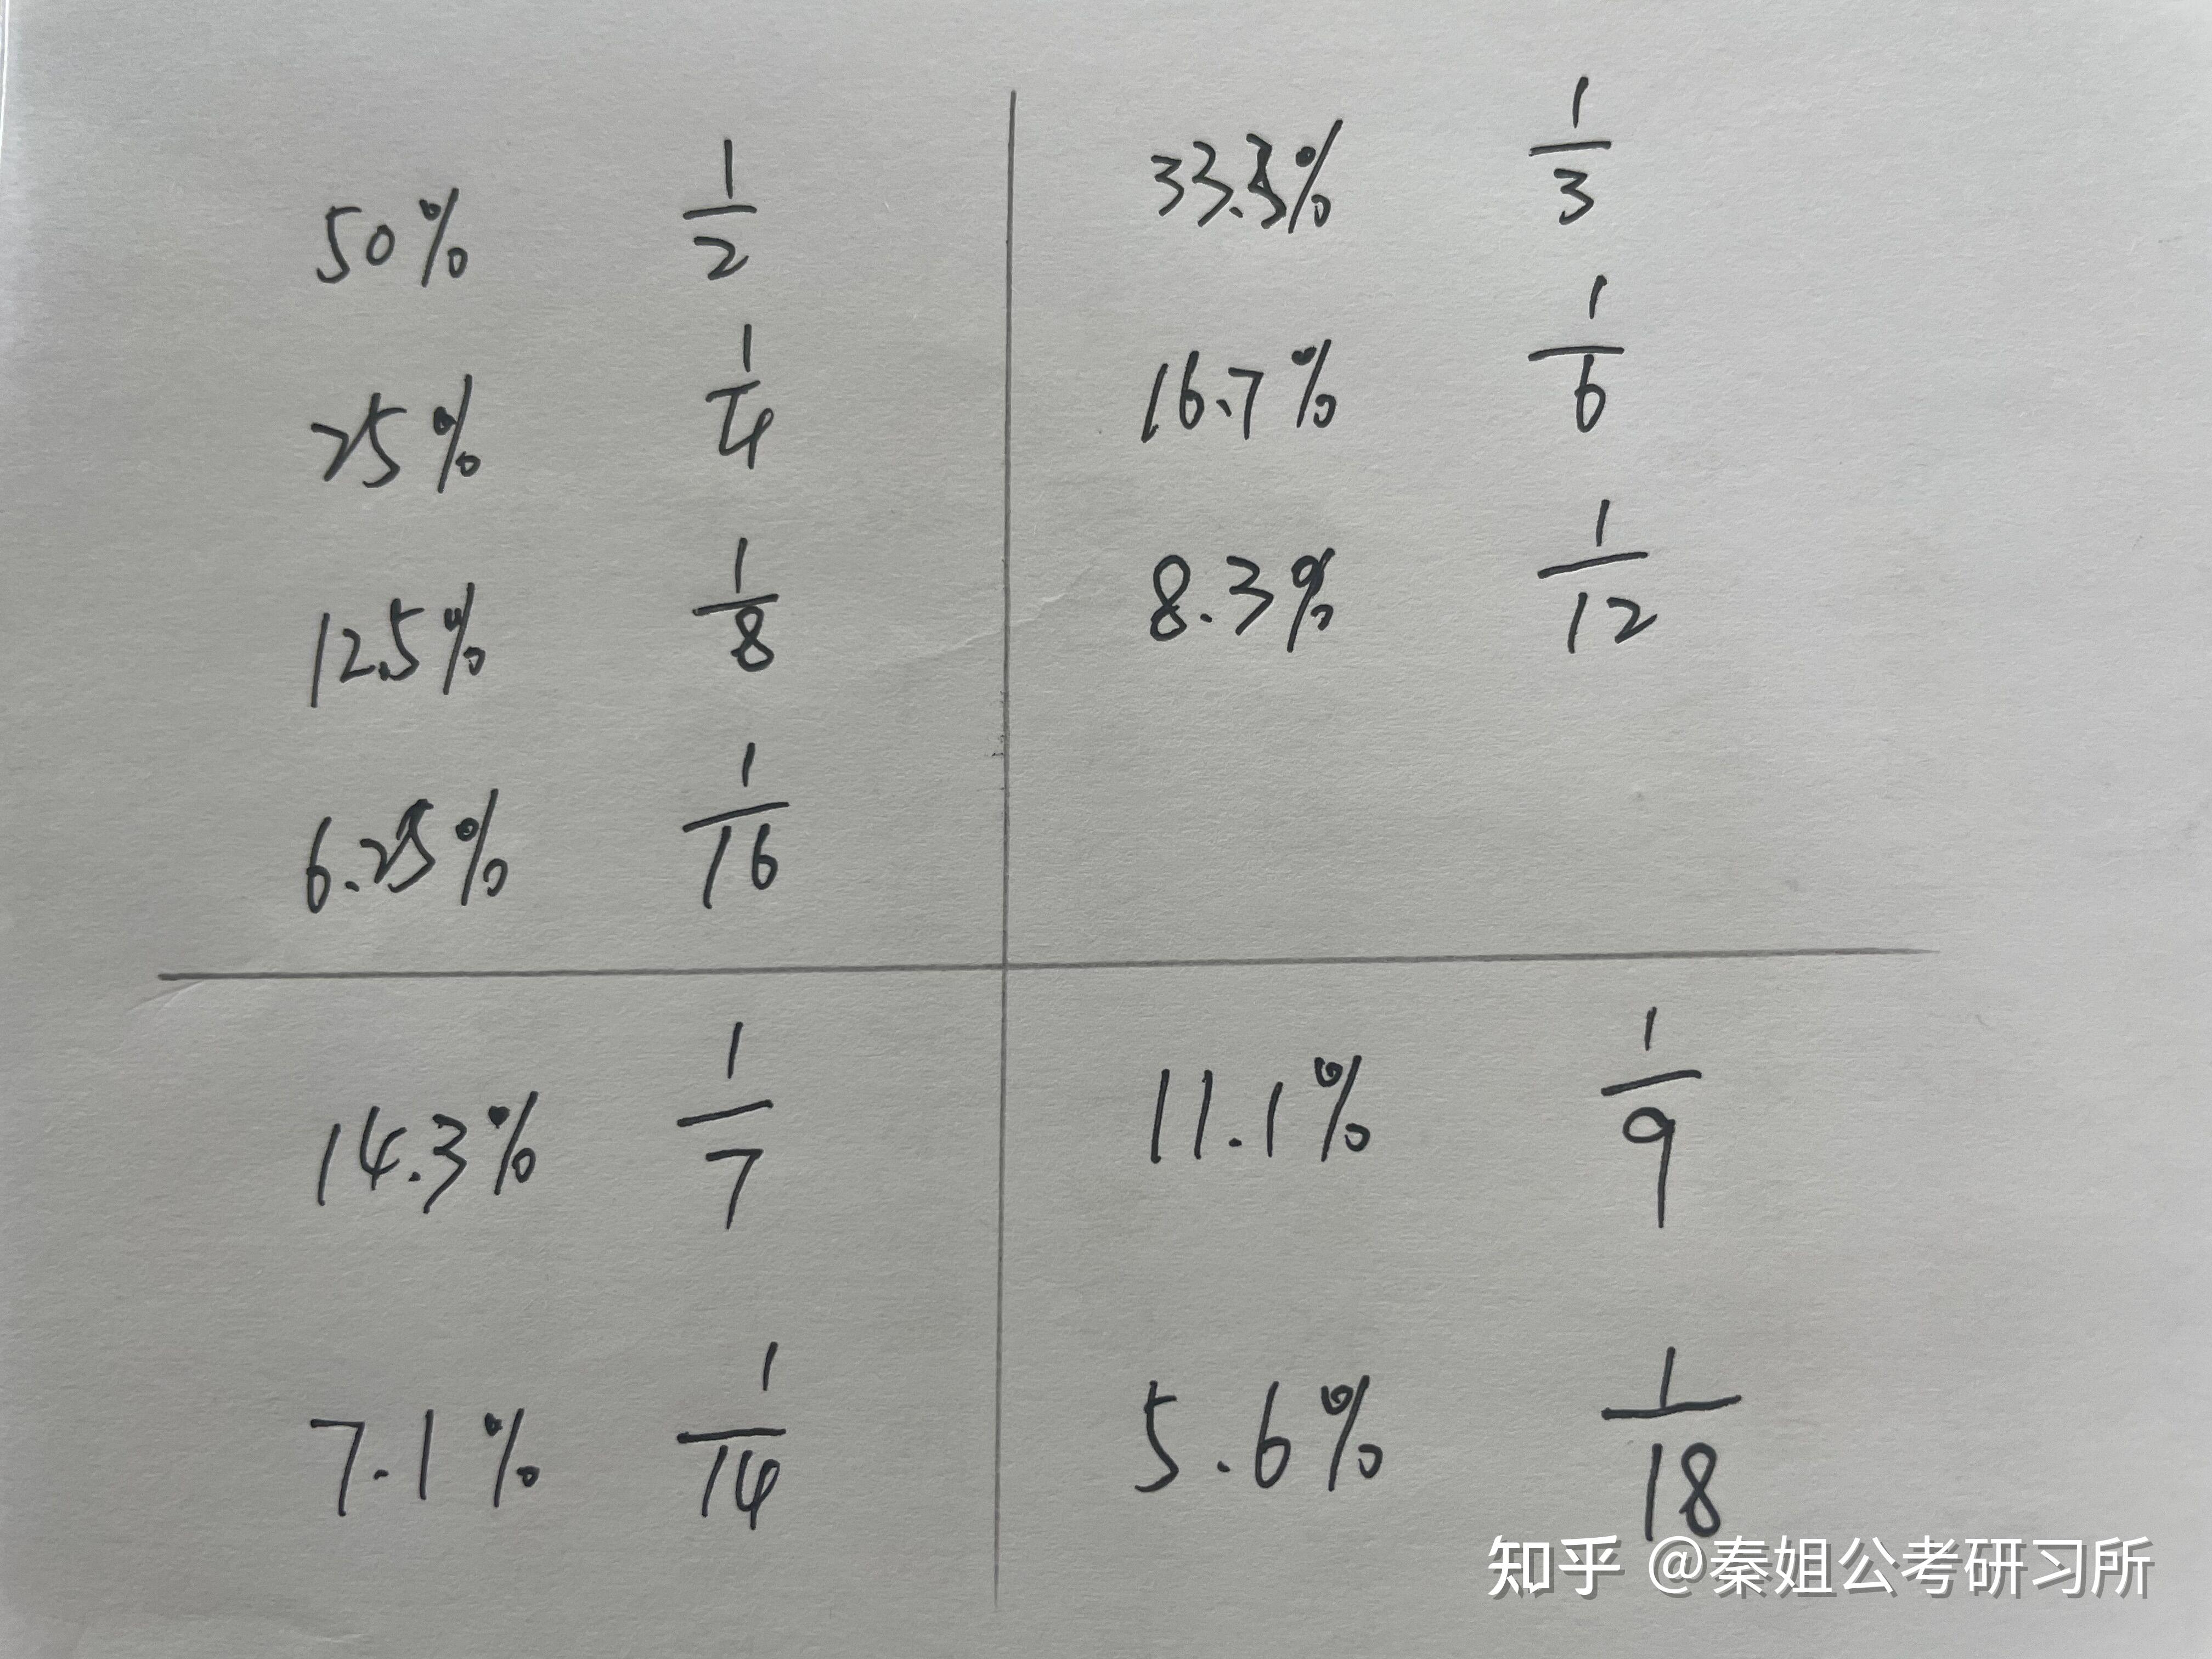 50% 1/2
25% 1/4
12.5% 1/8
6.25% 1/16
33.3% 1/3
16.7% 1/6
8.3% 1/12
14.3% 1/7
7.1% 1/14
11.1% 1/9
5.6% 1/18
知乎 @秦姐公考研习所